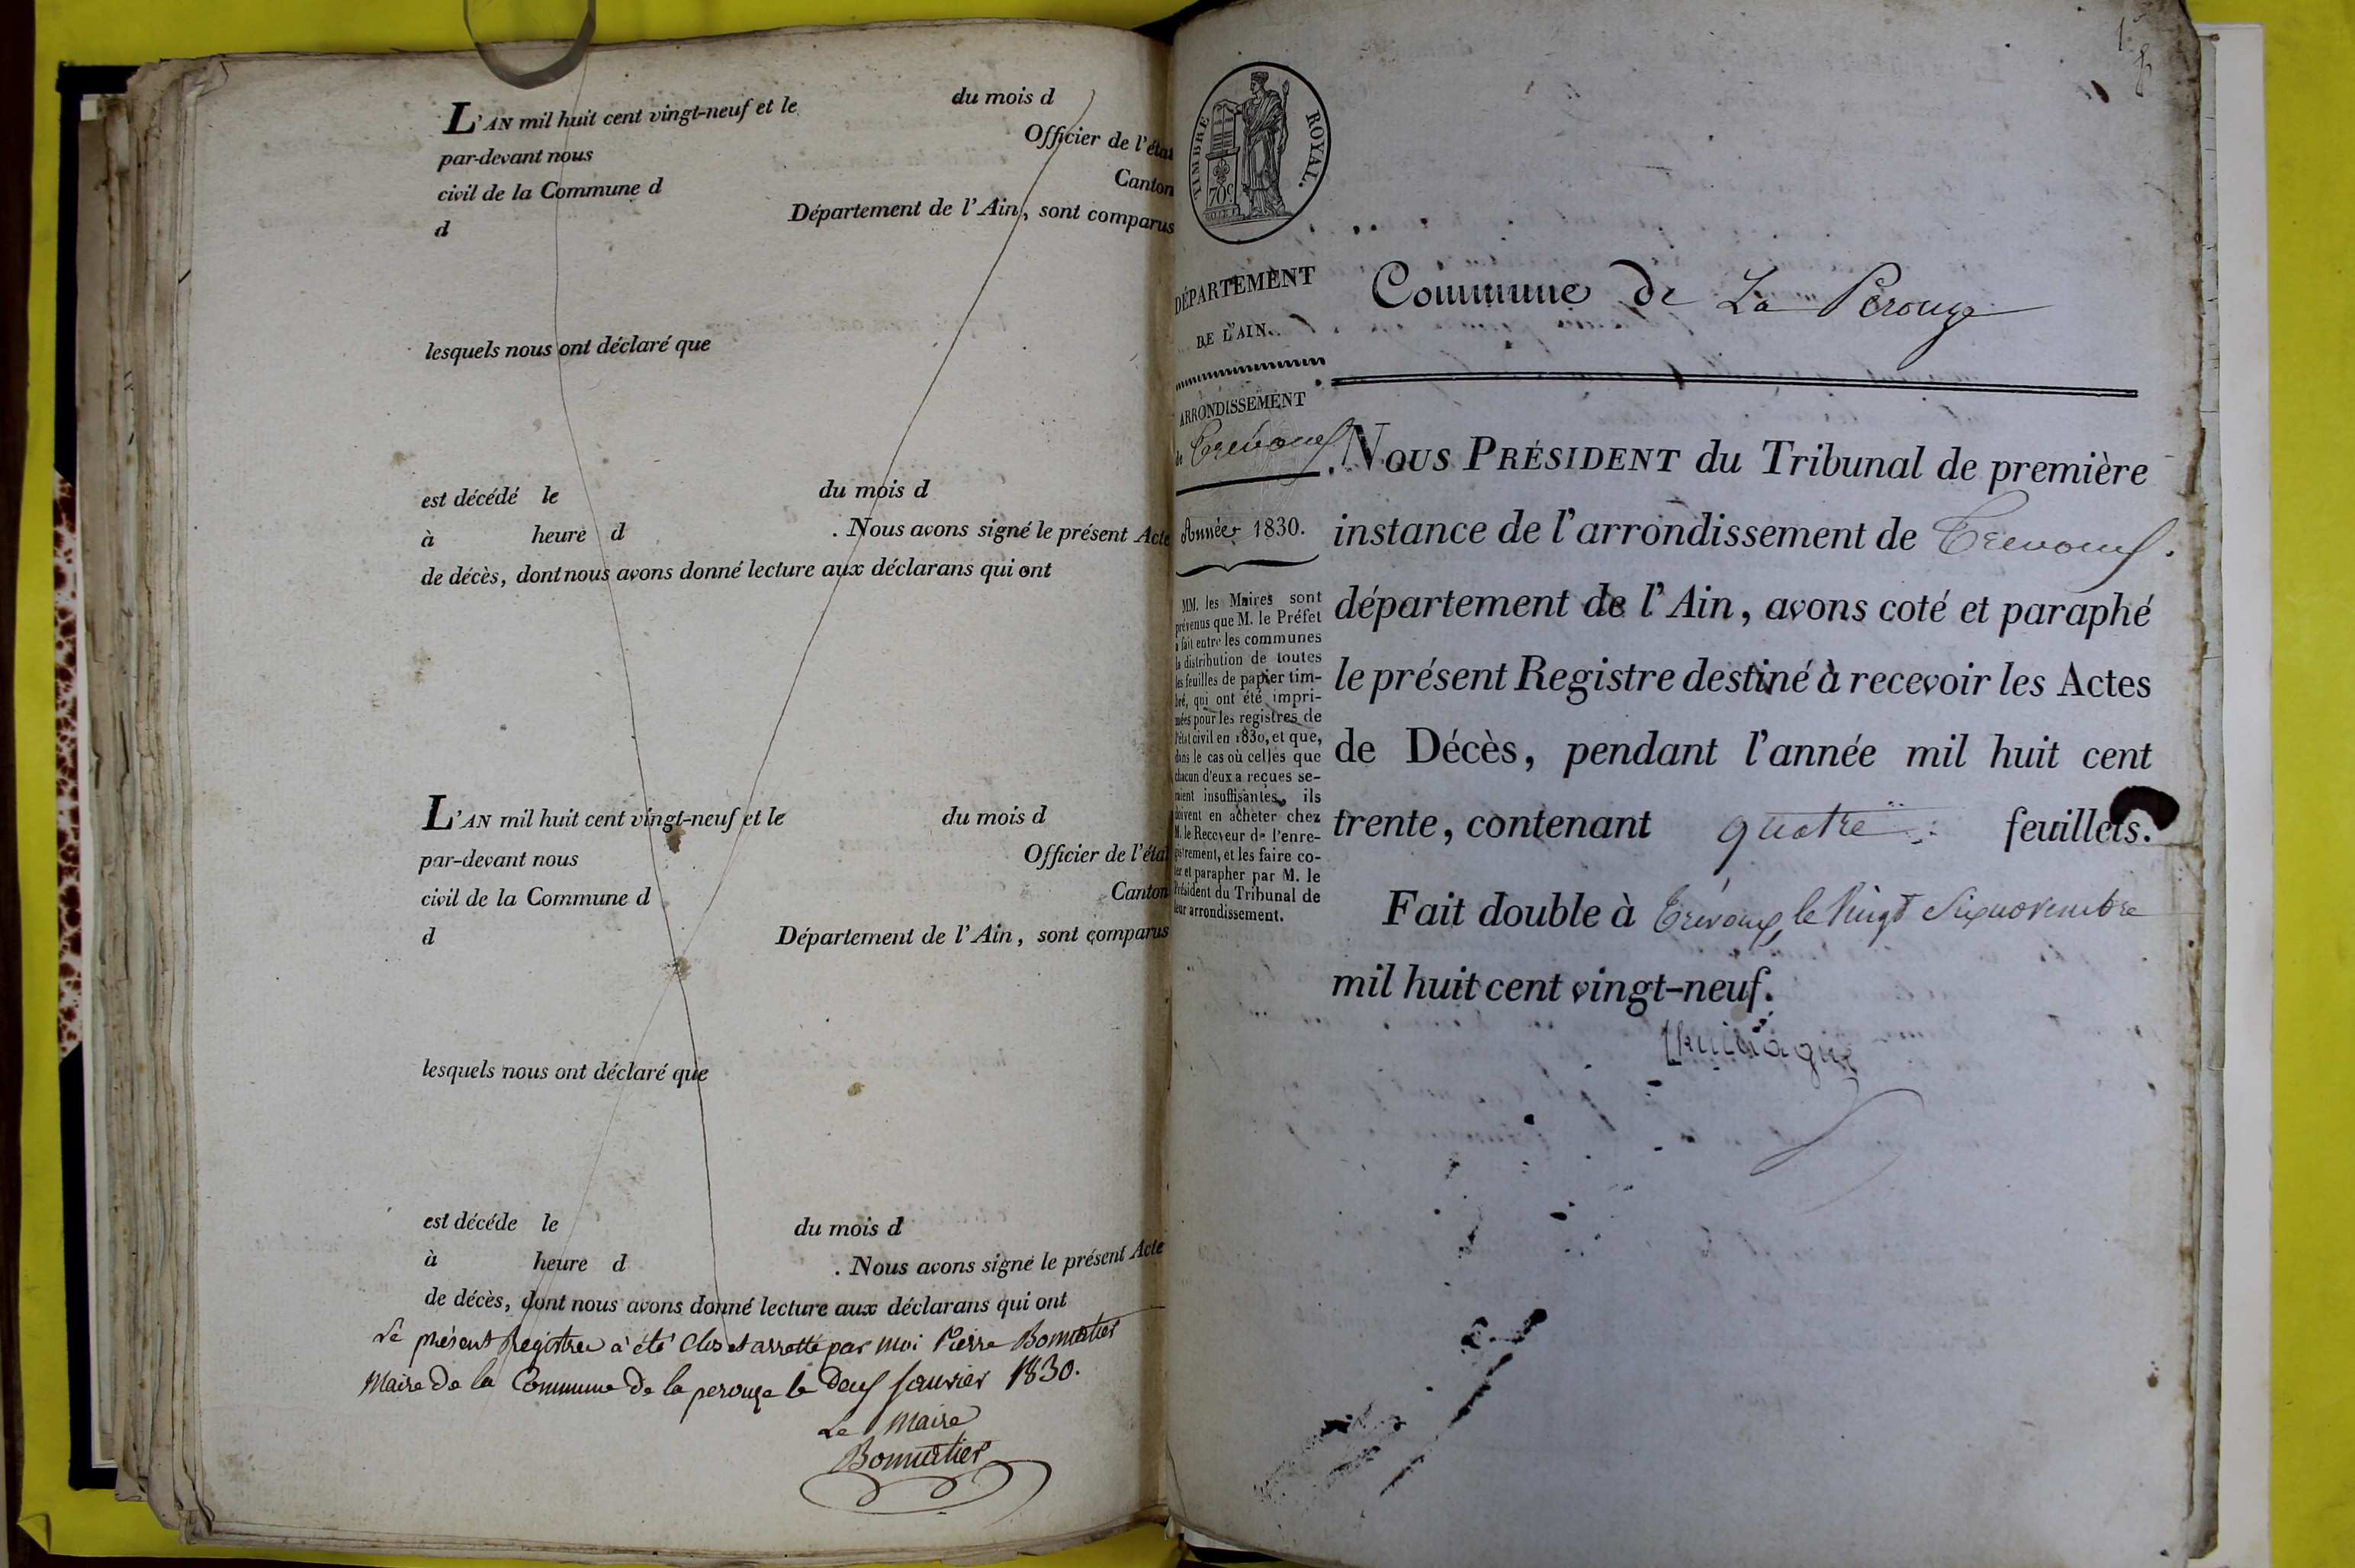 L'AN mil huit cent vingt-neuf et le du mois d
par-devant nous Officier de l'état
civil de la Commune d Canton
d Département de l'Ain, sont comparus
lesquels nous ont déclaré que
est décédé le du mois d
à heure d . Nous avons signé le présent Acte
de décès, dont nous avons donné lecture aux déclarans qui ont
L'AN mil huit cent vingt-neuf et le du mois d
par-devant nous Officier de l'état
civil de la Commune d Canton
d Département de l'Ain, sont comparus
lesquels nous ont déclaré que
est décéde le du mois d
à heure d . Nous avons signé le présent Acte
de décès, dont nous avons donné lecture aux déclarans qui ont
Le présent Registre a été clos et arretté par moi Pierre Bonnatier
Maire De la Commune De la perouze le Deux Janvier 1830.
Le Maire
Bonnatier
1
TIMBRE ROYAL.
70c
DÉPARTEMENT
DE L'AIN.
ARRONDISSEMENT
de Trevoux
Année 1830.
MM. les Maires sont
prévenus que M. le Préfet
a fait entre les communes
la distribution de toutes
les feuilles de papier tim-
bré, qui ont été impri-
mées pour les registres de
l'état civil en 1830, et que,
dans le cas où celles que
chacun d'eux a reçues se-
raient insuffisantes, ils
doivent en acheter chez
M. le Receveur de l'enre-
gistrement, et les faire co-
ter et parapher par M. le
Président du Tribunal de
leur arrondissement.
Commune de La Perouze
NOUS PRÉSIDENT du Tribunal de première
instance de l'arrondissement de Trevoux.
département de l'Ain, avons coté et paraphé
le présent Registre destiné à recevoir les Actes
de Décès, pendant l'année mil huit cent
trente, contenant quatre feuillets.
Fait double à Trévoux, le Vingt Six novembre
mil huit cent vingt-neuf.